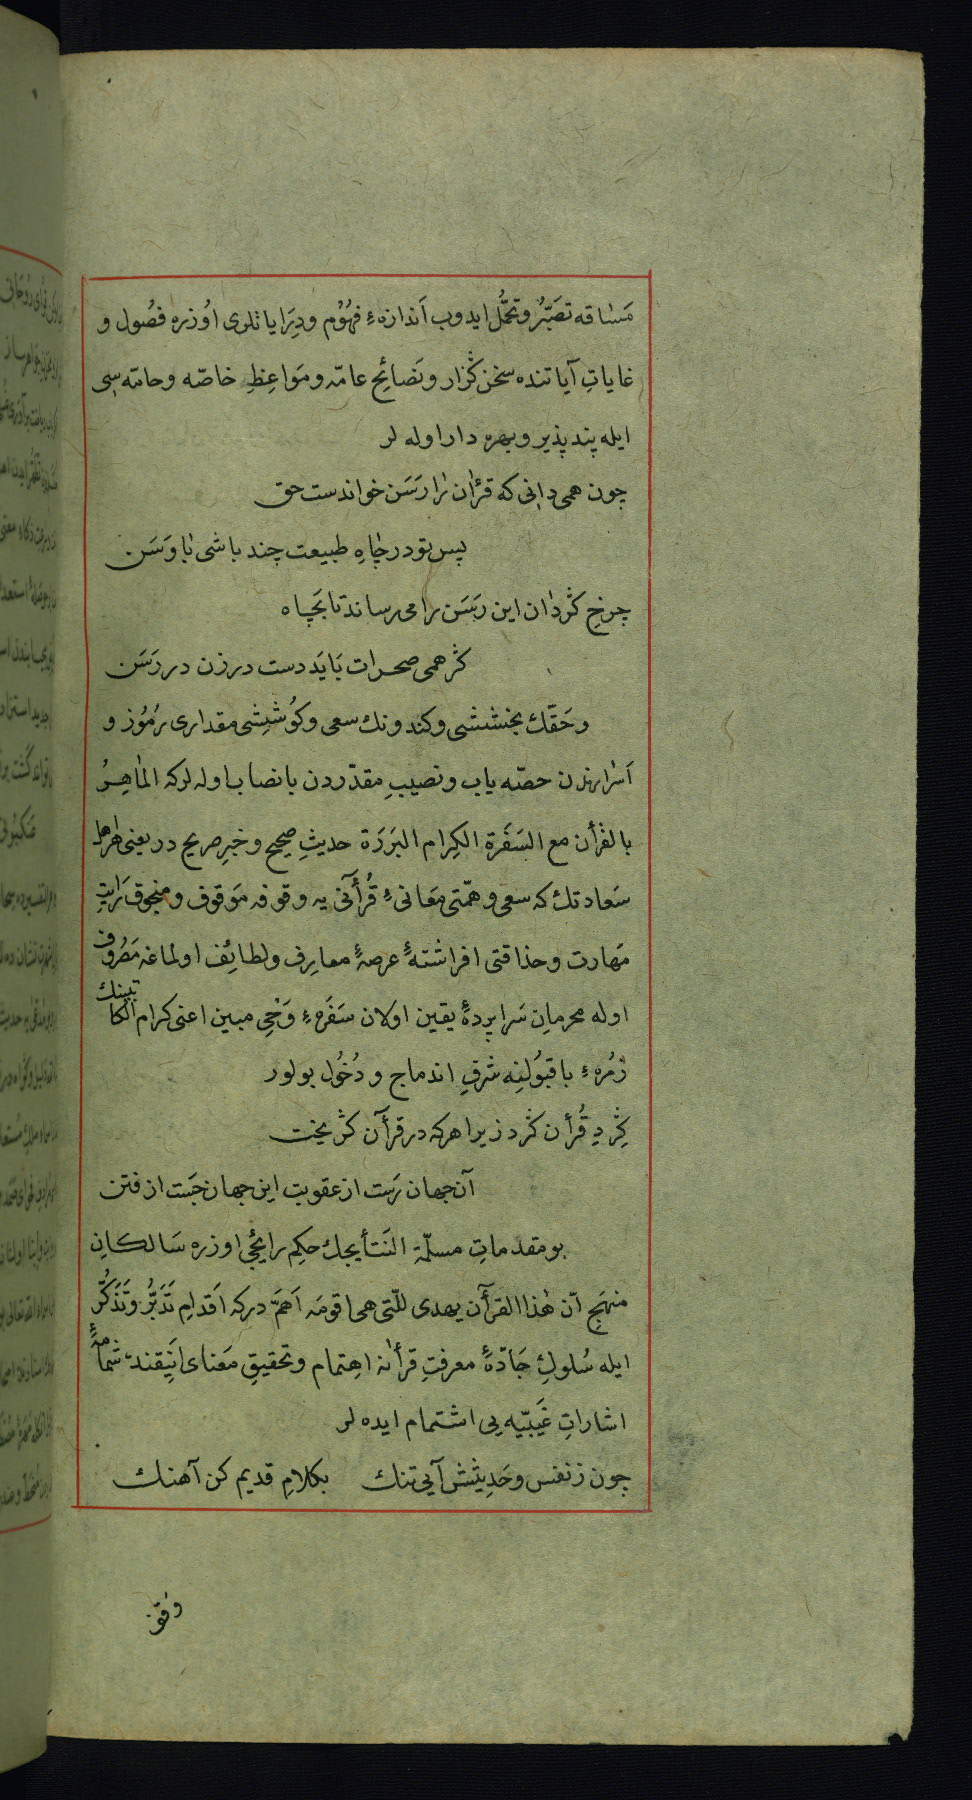 مَسَاقه تَصَبُّر و تحمُّل ايدوب اَندازهٔ فهُوُم و دِرَاياتلرى اُوزره فصُول و
غاياتِ آياتنده سخن گزار و نَصائحِ عامّه و مَواعِظِ خاصّه و حامّه سى
ايله پند پذير و بهره دار اوله لر
چون همى دانى كه قرآن را رَسَن خواندست حق
پس تو در چاهِ طبيعت چند باشى با وَسَن
چرخِ گردان اين رَسَن را مى رساند تا بَچاه
گر همى صحرات بَايَد دست در زن در رَسَن
و حَقّك بخششى و كندونك سعى و كُوشِشى مقدارى رُمُوز و
اَسْرارندن حصّه ياب و نصيبِ مقدّردن با نصاب اوله لر كه الماهِرُ
بالقرأن مع السَفَرَة الكِرام البَرَرَة حديثِ صحيح و خبرِ صريح در يعنى هر اهل
سَعادتك كه سعى و همّتى مَعانىءِ قُرأنى يه وقوفه مَوقوف و منجوقِ رَايتِ
مَهارت و حذاقتى افراشتهٔ عرصهٔ معارِف و لطائف اولماغه مَصْرُوف
اوله محرمانِ سَراپردهٔ يقين اولان سَفَرهٔ وَحْىِ مبين اعنى كرام الكاتبينك
زُمرهٔ با قبُولنه شرفِ اندماج و دُخُول بولور
گِردِ قُرأن گرد زيرا هركه در قرأن گريخت
آن جهان رَست از عقوبت اين جهان جَست از فتن
بو مقدماتِ مسلّمة النَتأيجك حكمِ رائجى اوزره سَالكانِ
منهَجِ اِن هٰذا القرآن يهدى للّتى هى اقومَه اَهَمّ در كه اَقدامِ تَدَبُّر و تَذَكُّر
ايله سُلوكِ جَادّهٔ معرفتِ قرأنه اِهتمام و تحقيقِ مَعناى اَنيقندن شمّامهٔ
اشاراتِ غَيبيّه يى اشتمام ايده لر
چون ز نفس و حَدِيثش آيى تنك بكلامِ قديم كن آهنك